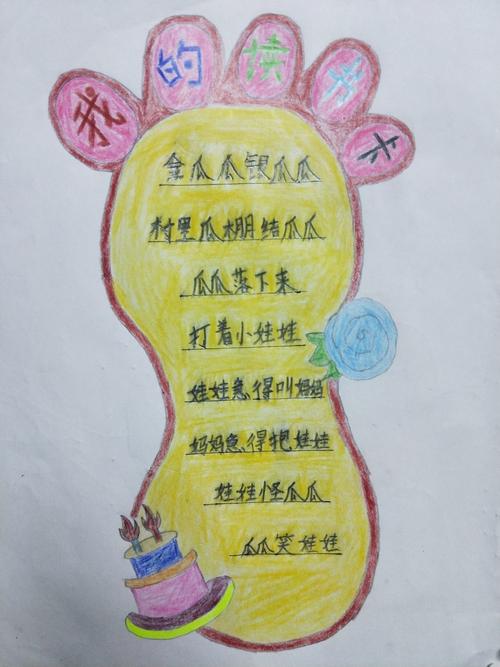 我的读书卡
金瓜瓜银瓜瓜
村里瓜棚结瓜瓜
瓜瓜落下来
打着小娃娃
娃娃急得叫妈妈
妈妈急得抱娃娃
娃娃怪瓜瓜
瓜瓜笑娃娃